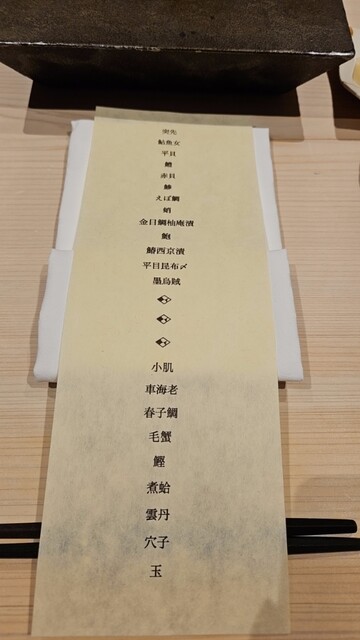 鮎魚女
平貝
赤貝
えぼ鯛
金目鯛柚庵漬
鮑
鰆西京漬
平目昆布〆
墨烏賊
小肌
車海老
春子鯛
毛蟹
鰹
煮蛤
雲丹
穴子
玉